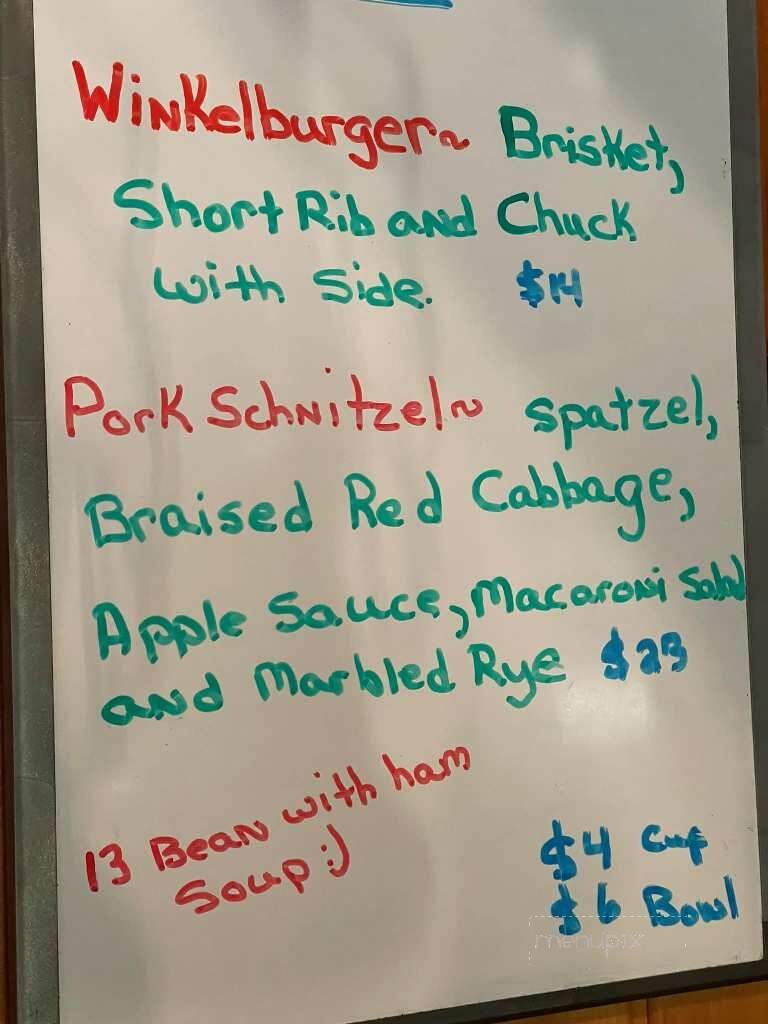 Winkelburger~ Brisket,
Short Rib and Chuck
with Side. $14
Pork Schnitzel~ spatzel,
Braised Red Cabbage,
Apple Sauce, Macaroni Salad
and Marbled Rye $23
13 Bean with ham
Soup :)
$4 Cup
$6 Bowl
menupix